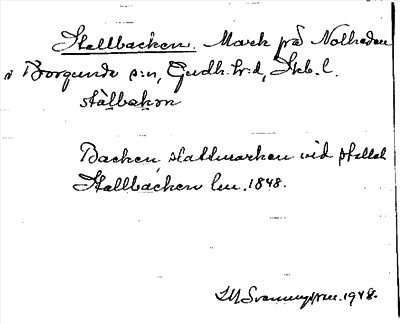 Stallbacken. Mark på Nolheden
i Borgunda s:n, Gudh. h:d, Skb. l.
stálbakɷn
Backen, stallmarken vid stallet
Stallbacken lm. 1848.
1948.